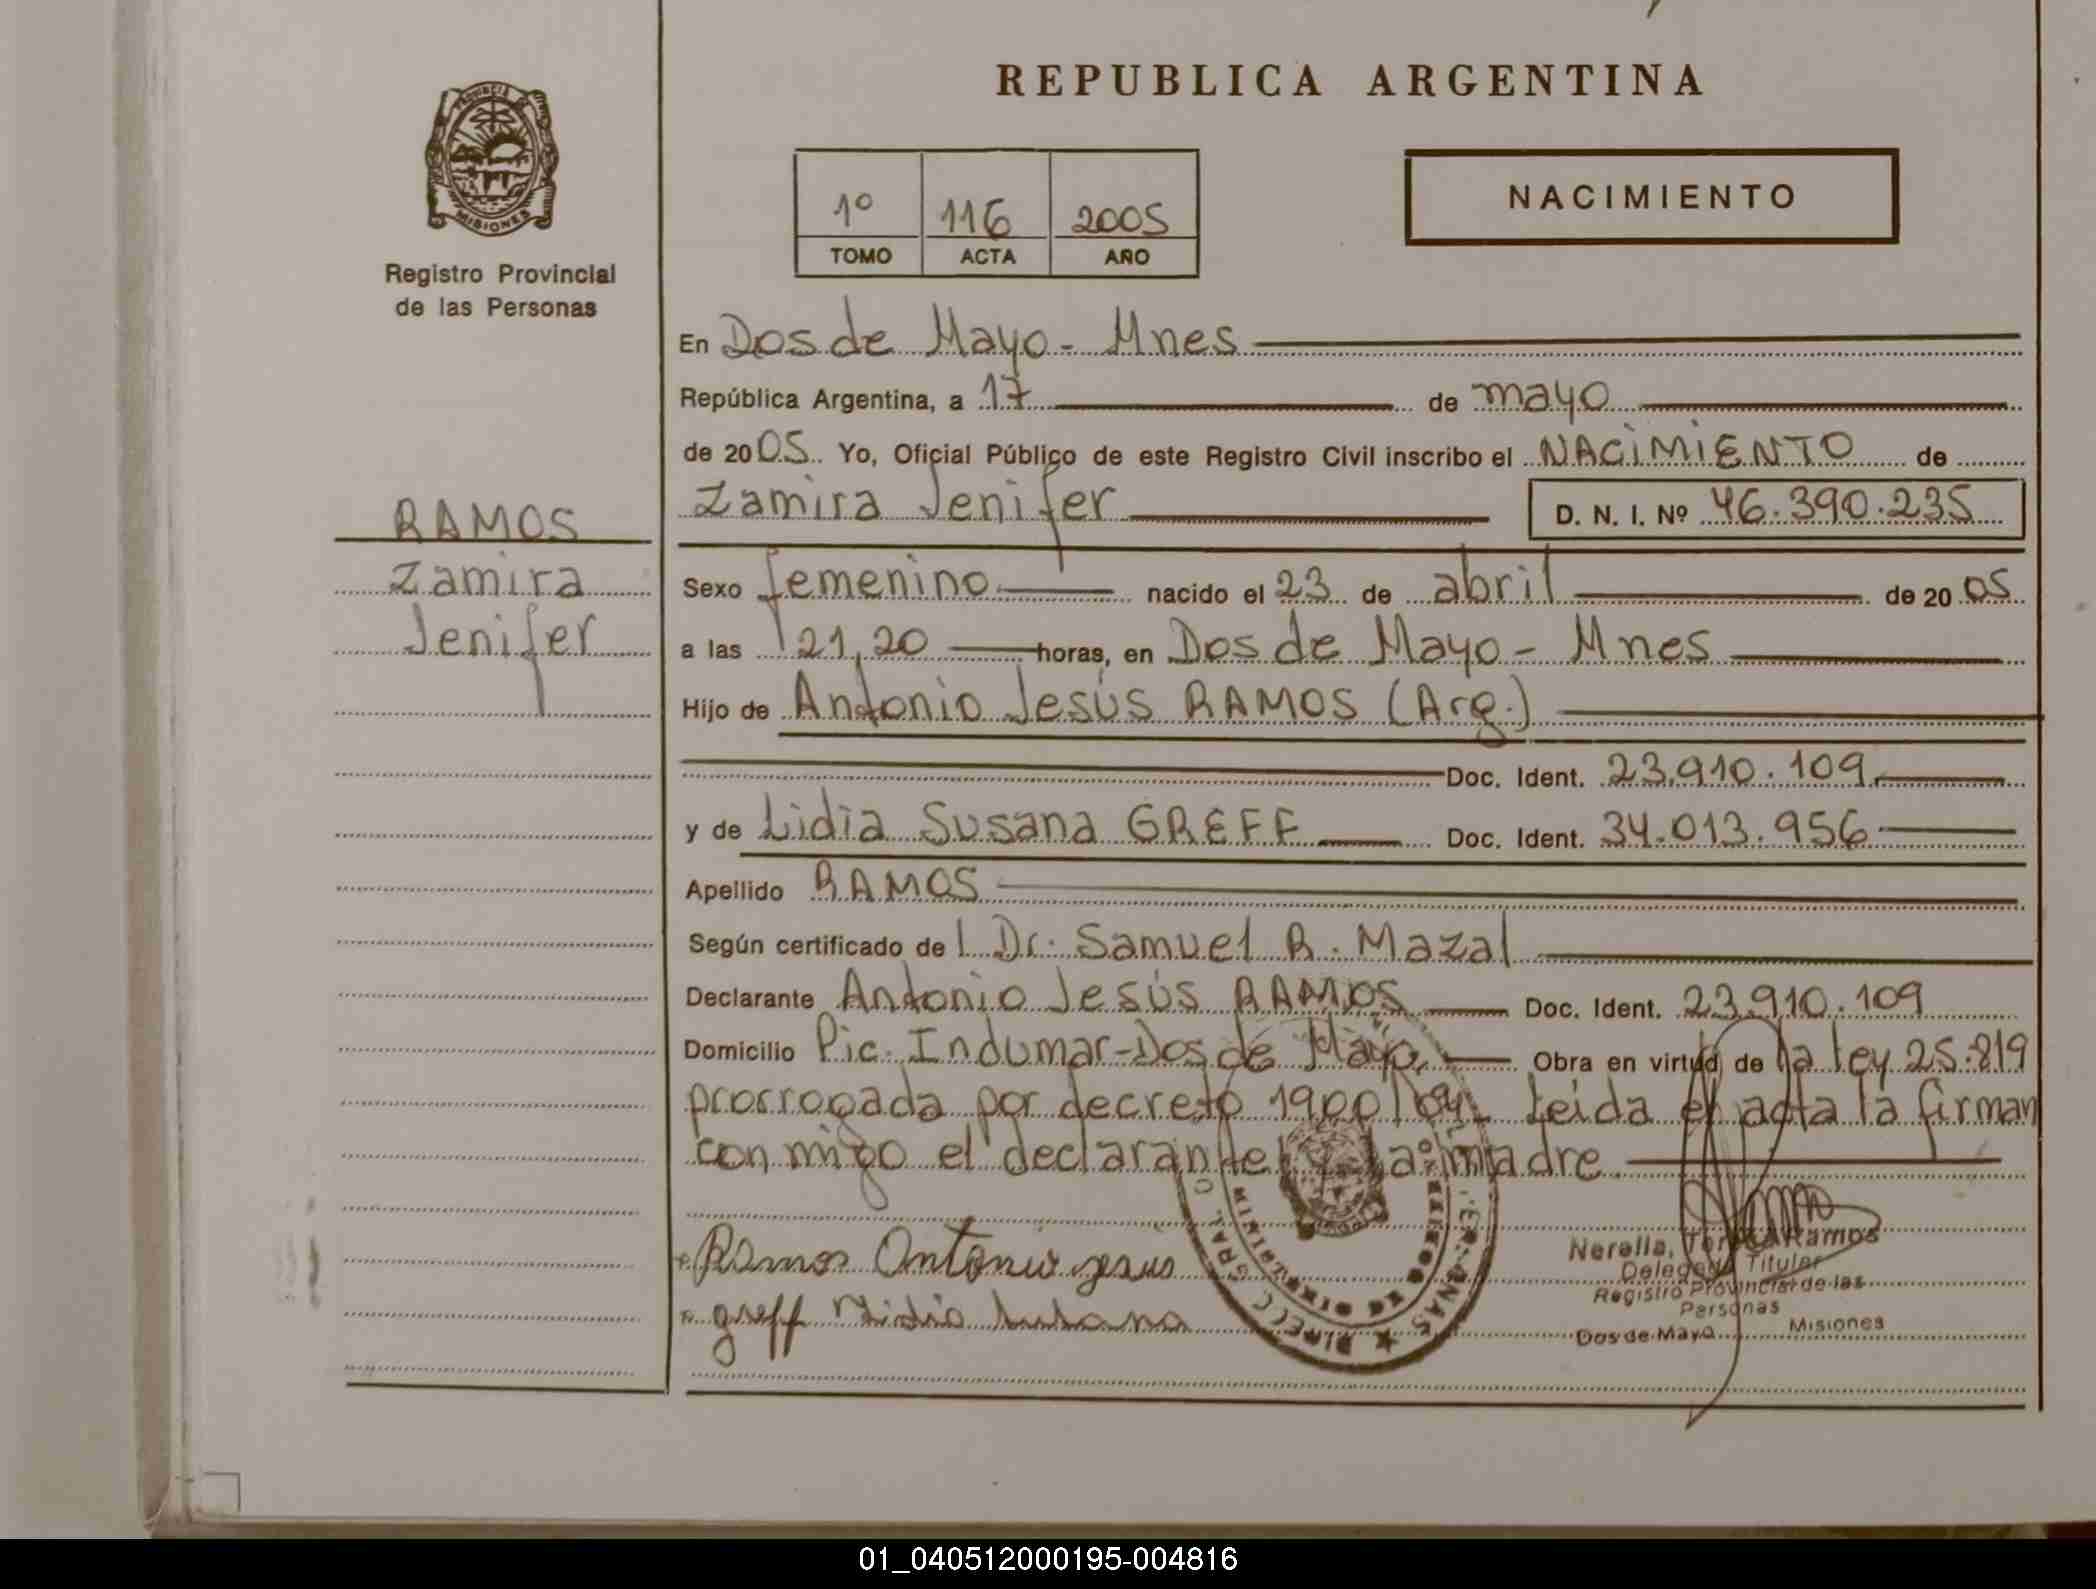 REPUBLICA ARGENTINA
PROVINCIA DE
MISIONES
Registro Provincial
de las Personas
1º 116 2005
TOMO ACTA AÑO
NACIMIENTO
En Dos de Mayo - Mnes
República Argentina, a 17 de mayo
de 2005. Yo, Oficial Público de este Registro Civil inscribo el NACIMIENTO de
Zamira Jenifer D. N. I. Nº 46.390.235
RAMOS
Zamira
Jenifer
Sexo femenino nacido el 23 de abril de 2005
a las 21,20 horas, en Dos de Mayo - Mnes
Hijo de Antonio Jesús RAMOS (Arg.)
Doc. Ident. 23.910.109
y de Lidia Susana GREFF Doc. Ident. 34.013.956
Apellido RAMOS
Según certificado de l Dr. Samuel R. Mazal
Declarante Antonio Jesús RAMOS Doc. Ident. 23.910.109
Domicilio Pic. Indumar-Dos de Mayo. Obra en virtud de la ley 25.819
prorrogada por decreto 1900/04. Leida el acta la firman
con migo el declarante y la madre.
Ramos Antonio jesus
greff Lidia Susana
Nerella, Ramos
Delegada Titular
Registro Provincial de las
Personas
Dos de Mayo Misiones
01_040512000195-004816